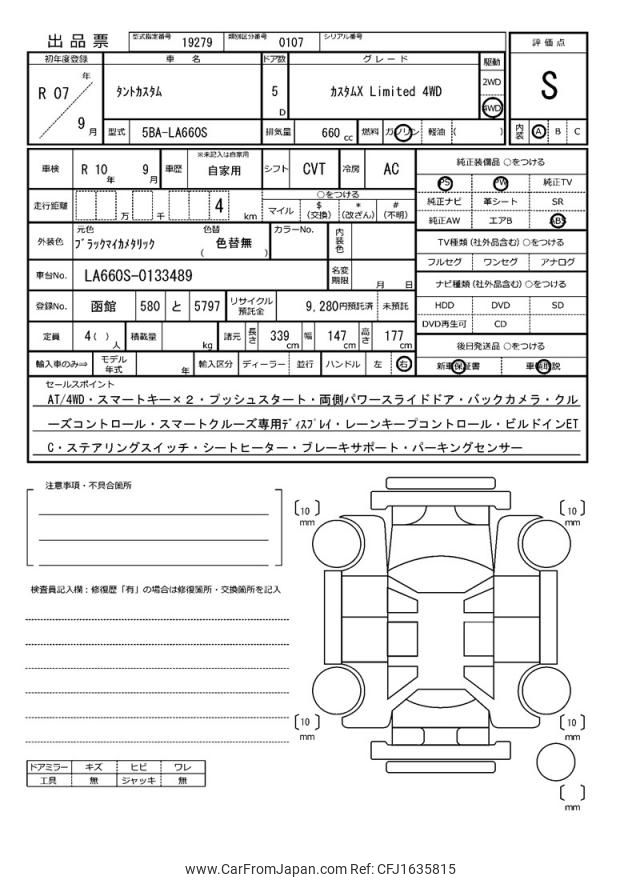 出品票 型式指定番号 19279 類別区分番号 0107 シリアル番号
初年度登録 車名 ドア数 グレード 駆動 評価点
R 07 年 9 月 タントカスタム 5 D カスタムX Limited 4WD 2WD 4WD S
型式 5BA-LA660S 排気量 660 cc 燃料 ガソリン 軽油 ( ) 内装 A B C
車検 R 10 年 9 月 車歴 ※未記入は自家用 自家用 シフト CVT 冷房 AC 純正装備品 ○をつける
PS PW 純正TV
走行距離 万 千 4 km ○をつける 純正ナビ 革シート SR
マイル $ (交換) * (改ざん) # (不明) 純正AW エアB ABS
外装色 元色 ブラックマイカメタリック 色替 ( 色替無 ) カラーNo. 内装色 TV種類 (社外品含む) ○をつける
フルセグ ワンセグ アナログ
車台No. LA660S-0133489 名変期限 月 日 ナビ種類 (社外品含む) ○をつける
登録No. 函館 580 と 5797 リサイクル預託金 9,280円預託済 未預託 HDD DVD SD
DVD再生可 CD
定員 4 ( ) 人 積載量 kg 諸元 長さ 339 cm 幅 147 cm 高さ 177 cm 後日発送品 ○をつける
輸入車のみ⇒ モデル年式 年 輸入区分 ディーラー 並行 ハンドル 左 右 新車保証書 車輌取説
セールスポイント
AT/4WD・スマートキー×2・プッシュスタート・両側パワースライドドア・バックカメラ・クル
ーズコントロール・スマートクルーズ専用ディスプレイ・レーンキープコントロール・ビルドインET
C・ステアリングスイッチ・シートヒーター・ブレーキサポート・パーキングセンサー
注意事項・不具合箇所
[10] mm [10] mm
検査員記入欄：修復歴「有」の場合は修復箇所・交換箇所を記入
[10] mm [10] mm
ドアミラー キズ ヒビ ワレ
工具 無 ジャッキ 無
[ ] mm
www.CarFromJapan.com Ref: CFJ1635815